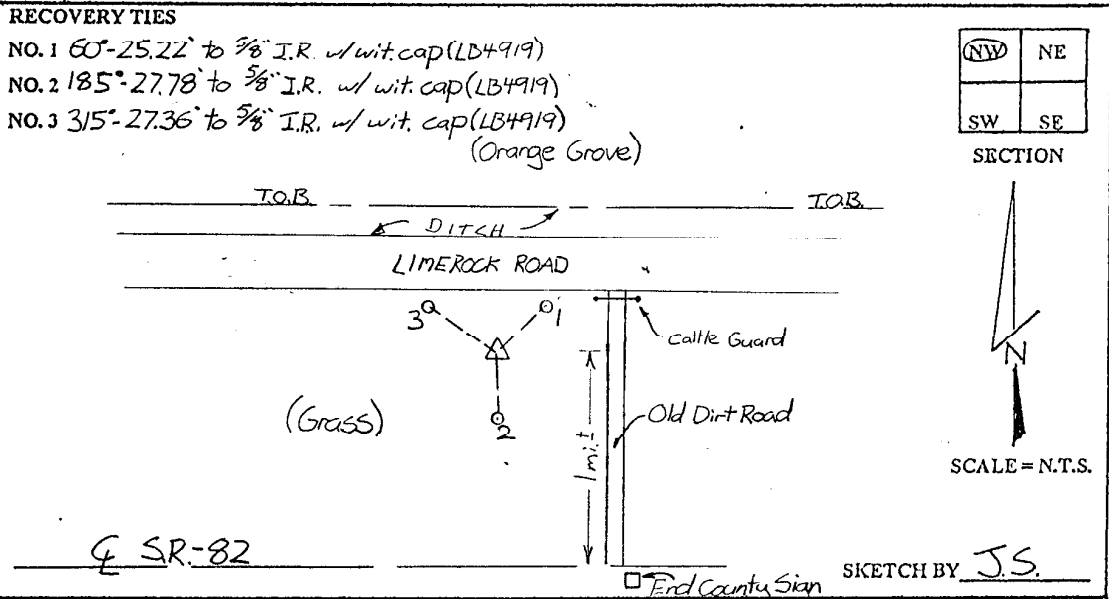 RECOVERY TIES
NO. 1 60°-25.22' to 5/8" I.R. w/ wit. cap (LB4919)
NO. 2 185°-27.78' to 5/8" I.R. w/ wit. cap (LB4919)
NO. 3 315°-27.36' to 5/8" I.R. w/ wit. cap (LB4919)
(Orange Grove)
NW NE
SW SE
SECTION
T.O.B. T.O.B.
DITCH
LIMEROCK ROAD
3 1
Cattle Guard
N
(Grass)
2
Old Dirt Road
1 mi. ±
SCALE = N.T.S.
℄ S.R.-82
End County Sign
SKETCH BY J.S.